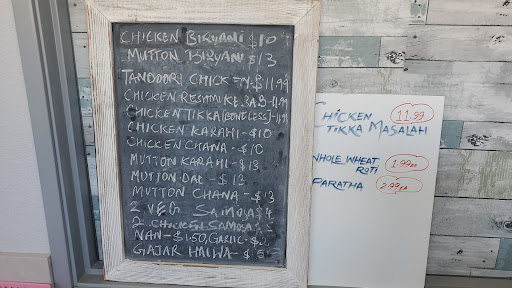 CHICKEN BIRYANI $10
MUTTON BIRYANI $13
TANDOORI CHICKEN $11.99
CHICKEN RESHMI KEBAB-11.99
CHICKEN TIKKA (BONELESS)-11.99
CHICKEN KARAHI - $10
CHICKEN CHANA - $10
MUTTON KARAHI - $13
MUTTON DAL - $13
MUTTON CHANA - $13
2 VEG SAMOSA $4
2 CHICKEN SAMOSA
NAN - $1.50, GARLIC - $
GAJAR HALWA - $5
CHICKEN 11.99
TIKKA MASALAH
WHOLE WHEAT 1.99
ROTI
PARATHA 2.99